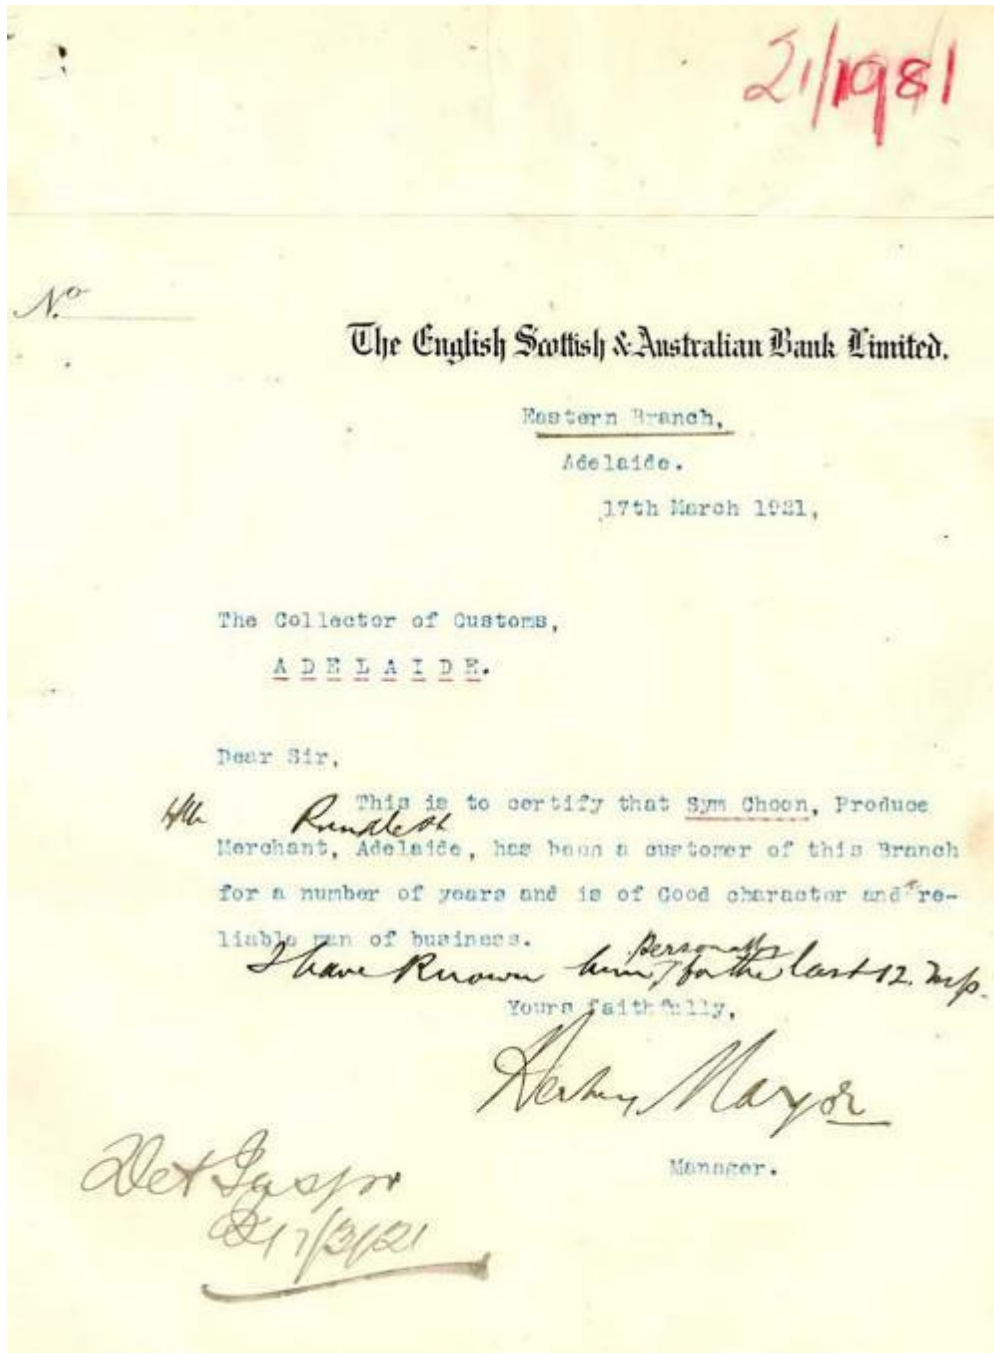 21/1981
No.
The English Scottish & Australian Bank Limited.
Eastern Branch,
Adelaide.
17th March 1921,
The Collector of Customs,
ADELAIDE.
Dear Sir,
This is to certify that Sym Choon, Produce
Rundle St
Merchant, Adelaide, has been a customer of this Branch
for a number of years and is of Good character and a re-
liable man of business.
personally
I have known him, for the last 12.
Yours faithfully,
Mayor
Manager.
Det Inspr
17/3/21